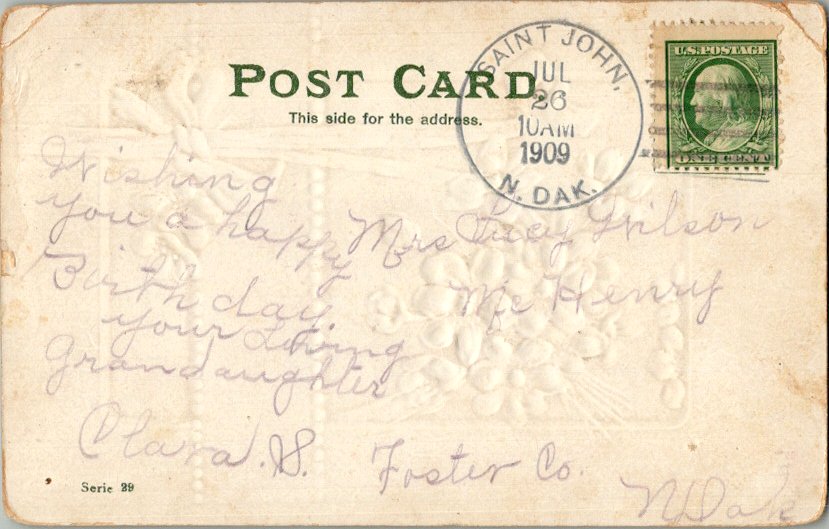 POST CARD.
This side for the address.
SAINT JOHN,
JUL
26
10AM
1909
N. DAK.
U.S. POSTAGE
ONE CENT
Wishing
you a happy
Birth day
your Loving
Grandaughter
Clara. S.
Mrs Lucy Wilson
Mc Henry
Foster Co.
N Dak
Serie 29